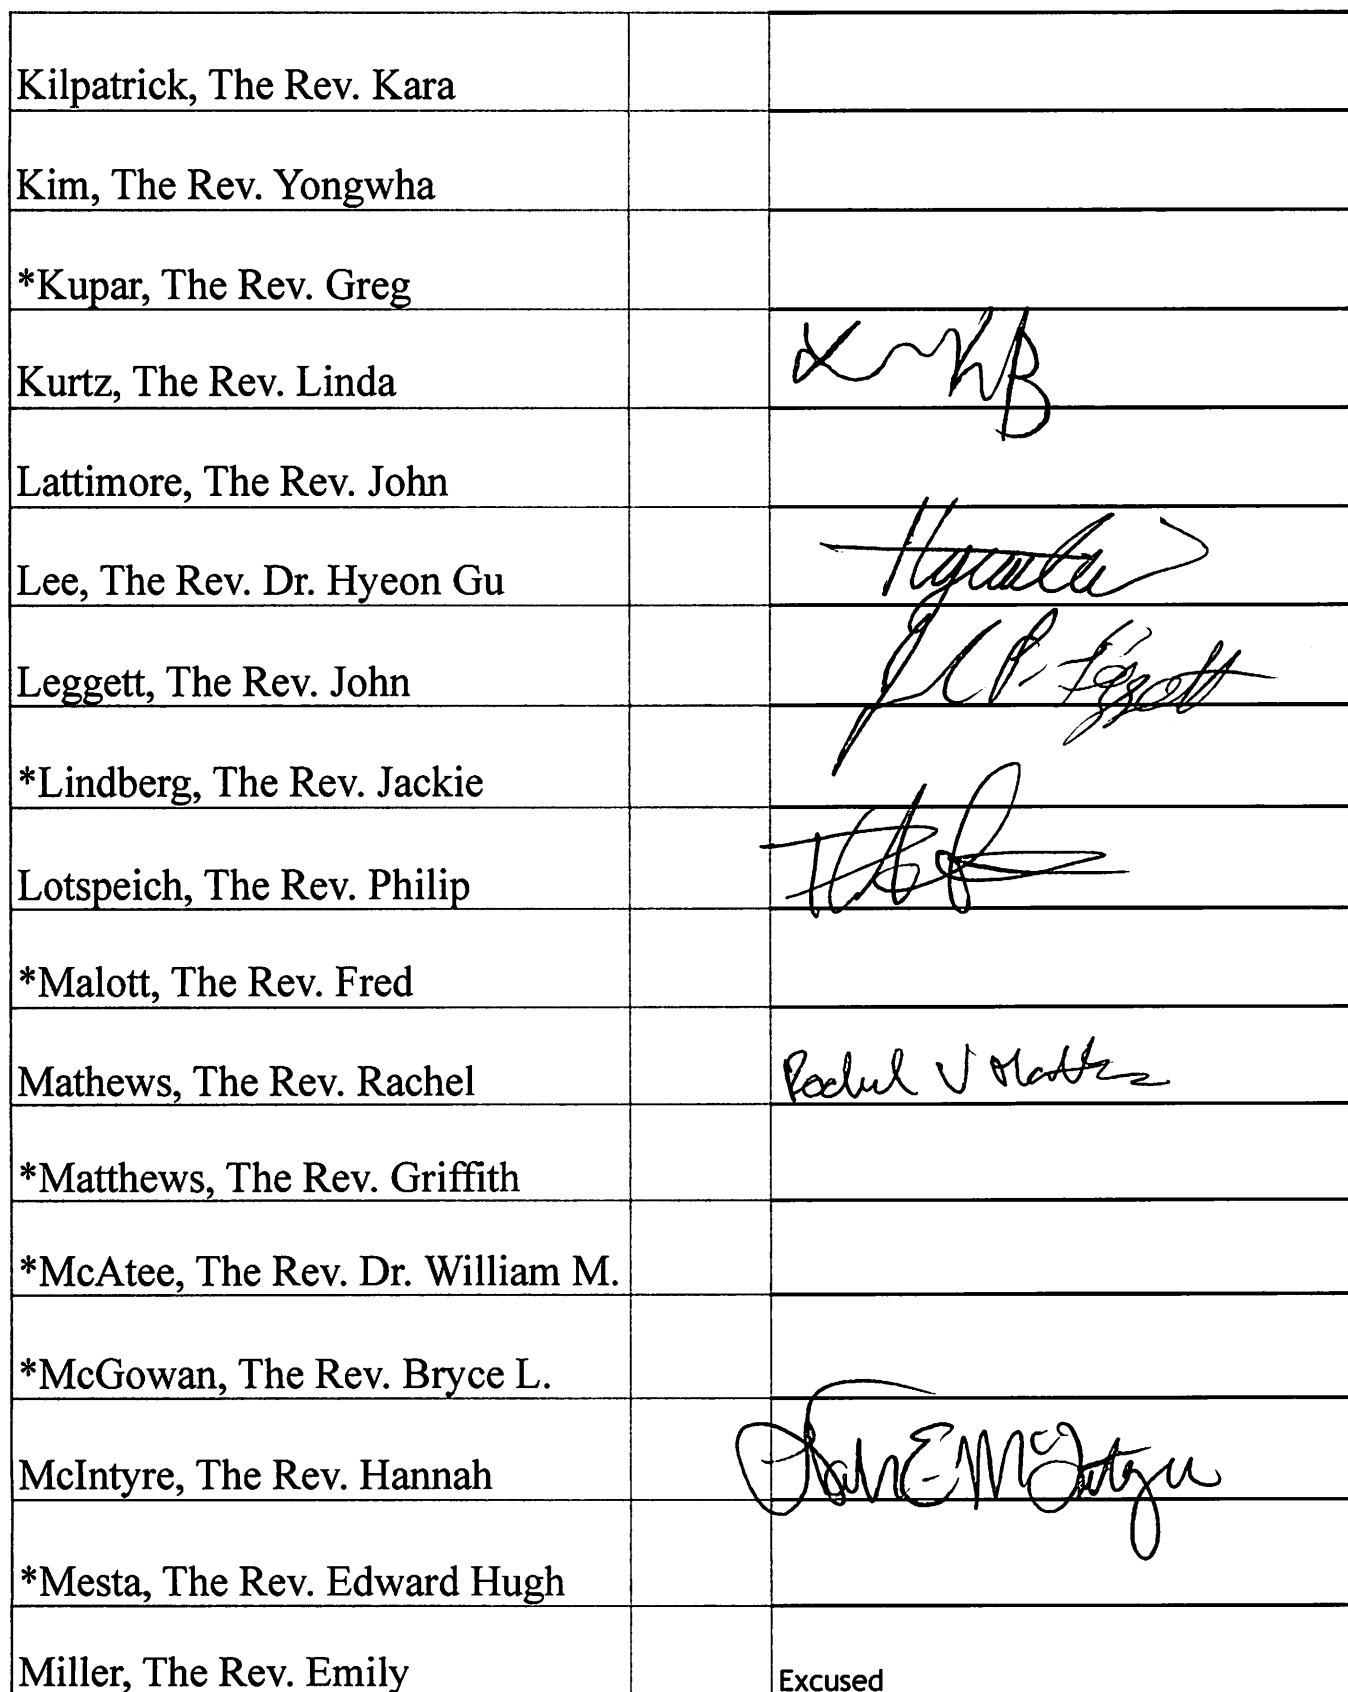 Kilpatrick, The Rev. Kara
Kim, The Rev. Yongwha
*Kupar, The Rev. Greg
Kurtz, The Rev. Linda
Lattimore, The Rev. John
Lee, The Rev. Dr. Hyeon Gu
Leggett, The Rev. John
*Lindberg, The Rev. Jackie
Lotspeich, The Rev. Philip
*Malott, The Rev. Fred
Mathews, The Rev. Rachel
*Matthews, The Rev. Griffith
*McAtee, The Rev. Dr. William M.
*McGowan, The Rev. Bryce L.
McIntyre, The Rev. Hannah
*Mesta, The Rev. Edward Hugh
Miller, The Rev. Emily Excused